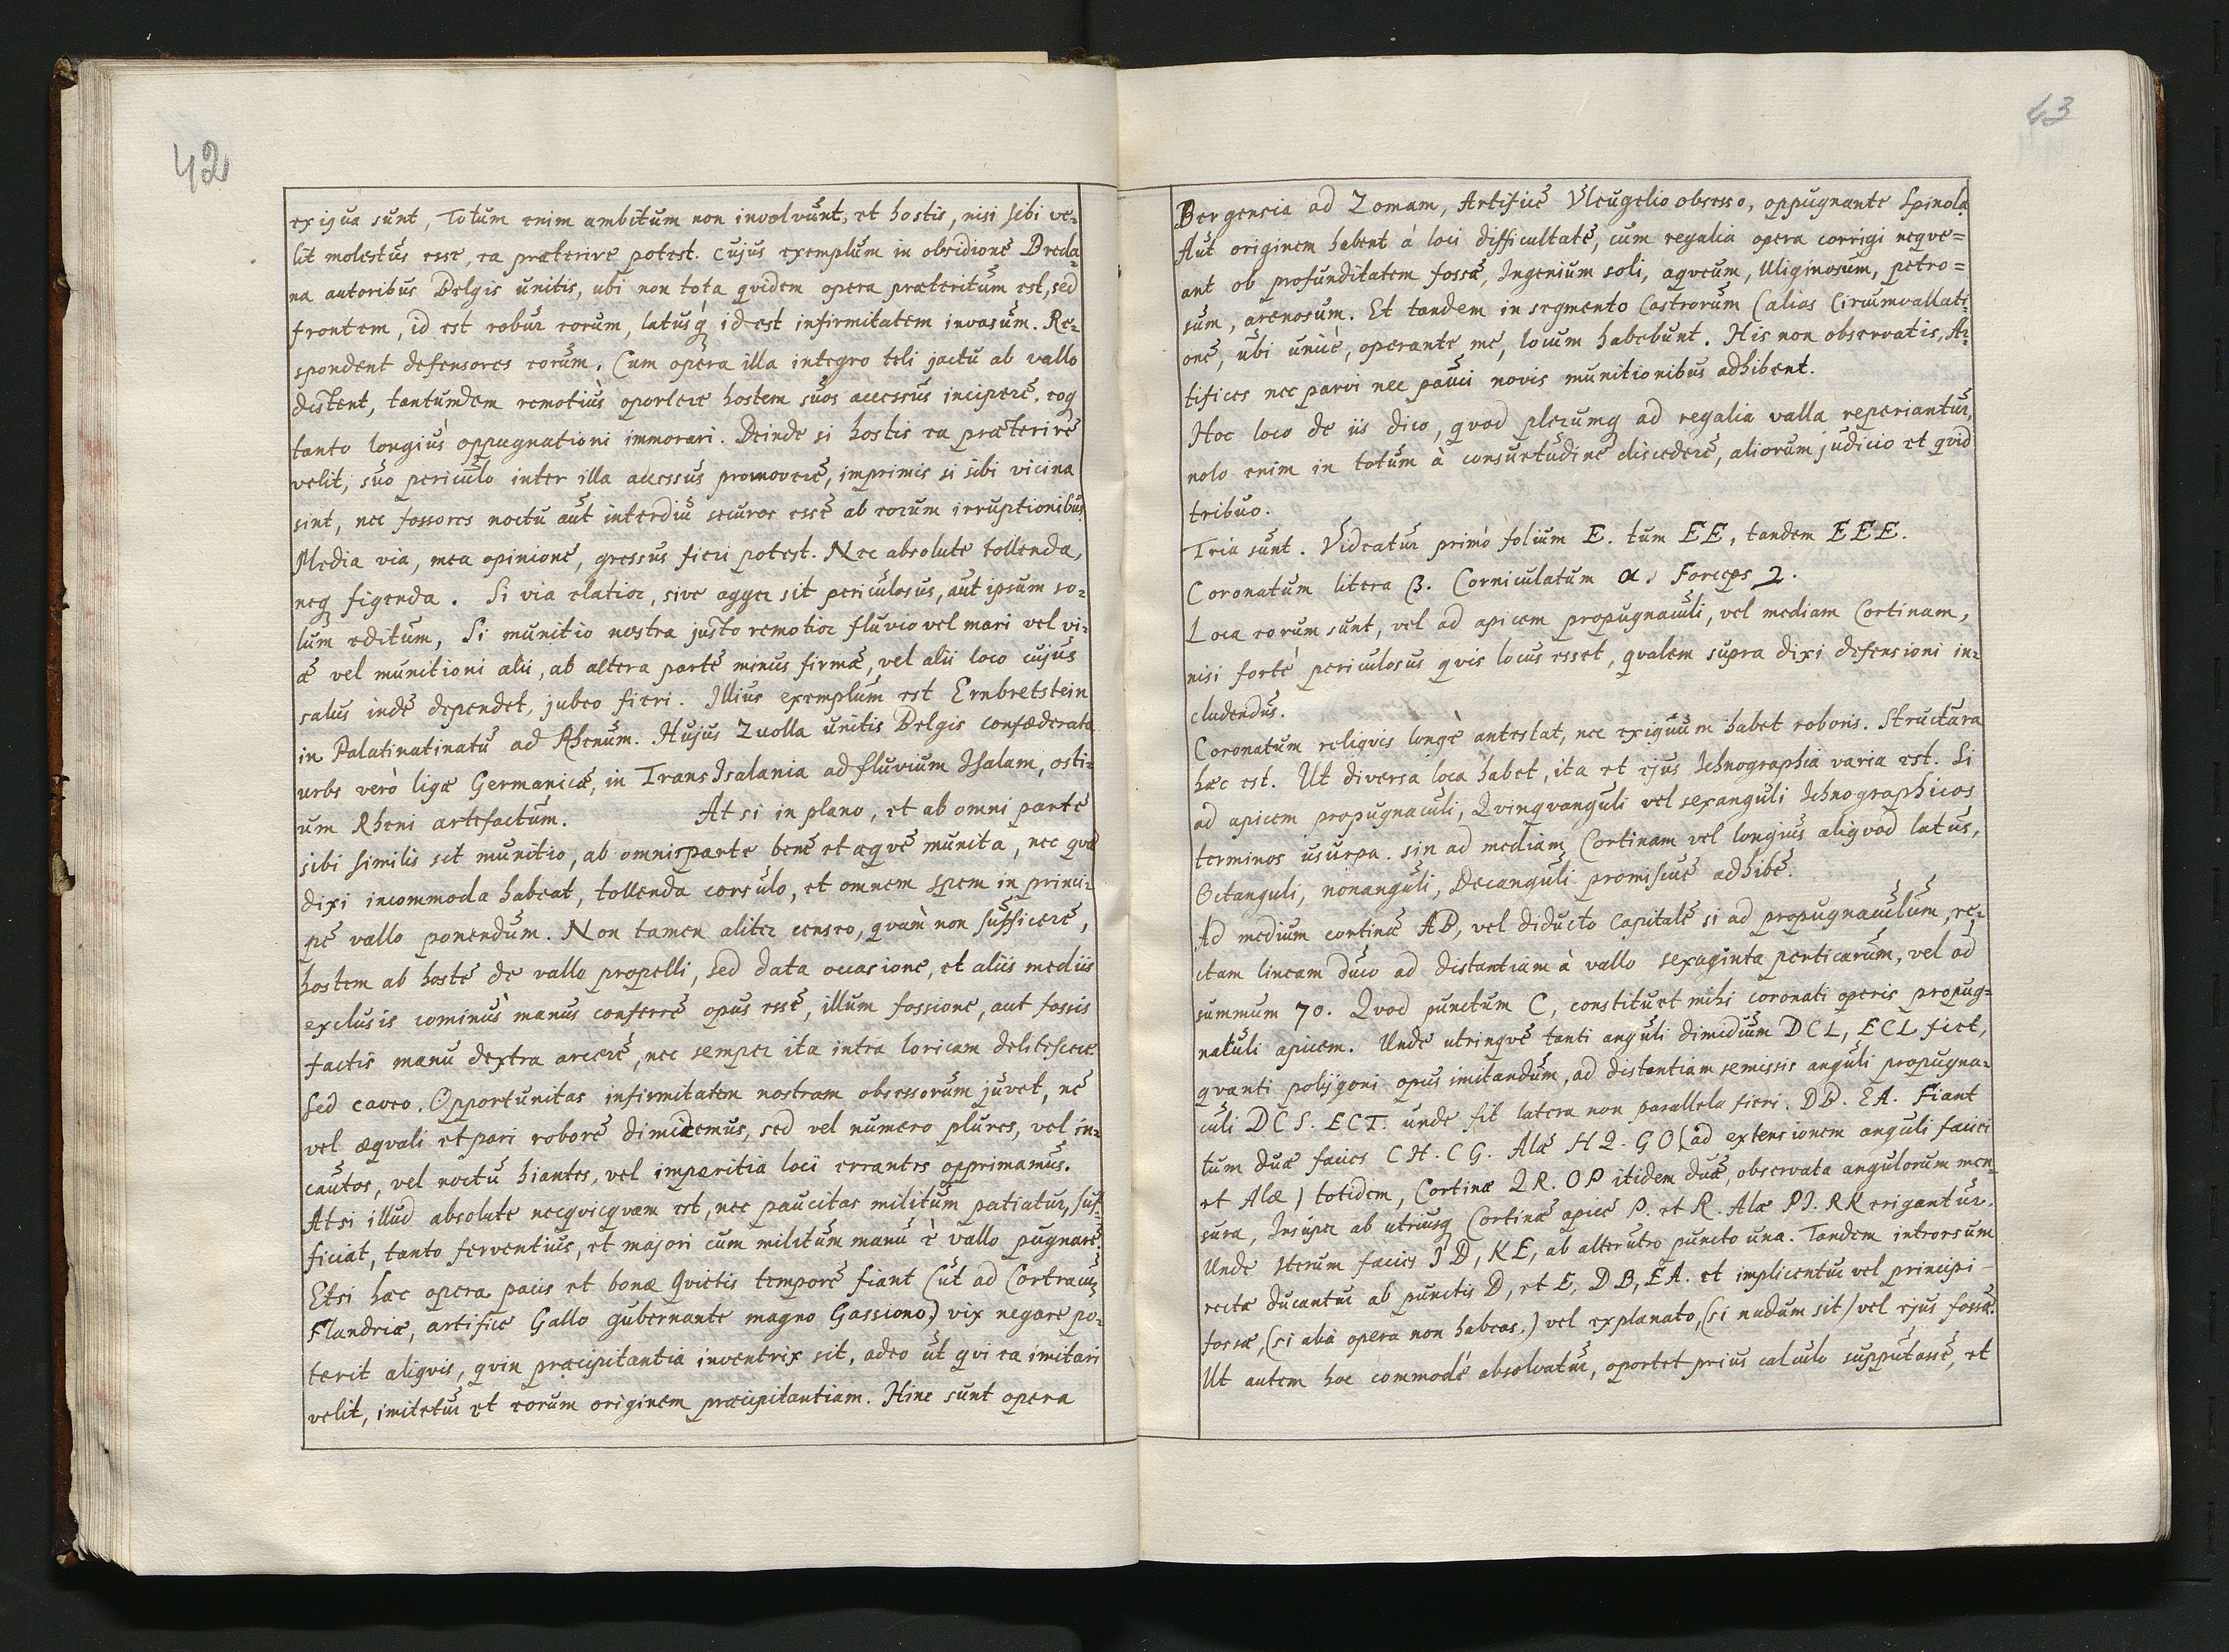 42
exigua sunt, Totum enim ambitum non involvunt, et hostis, nisi sibi ve-
lit molestus esse, ea præterire potest. cujus exemplum in obsidione Breda-
na autoribus Belgis unitis, ubi non tota qvidem opera præteritum est, sed
frontem, id est robur eorum, latusq́ id est infirmitatem invasum. Re-
spondent defensores eorum. Cum opera illa integro teli jactu ab vallo
distent, tantumdem remotiùs oportere hostem suos accessus incipere, eoq
tanto longiùs oppugnationi immorari. Deinde si hostis ea præterire
velit, suo periculo inter illa accessus promovere, imprimis si sibi vicina
sint, nec fossores noctu aut interdiu securos esse ab eorum irruptionibus.
Media via, mea opinione, gressus fieri potest. Nec absolute tollenda,
neq figenda. Si via elatior, sive agger sit periculosus, aut ipsum so-
lum editum, Si munitio nostra justo remotior fluvio vel mari vel vi-
æ vel munitioni alii, ab altera parte minus firmæ, vel alii loco cujus
salus inde dependet, jubeo fieri. Illius exemplum est Ernbretstein
in Palatinatinatu ad Rhenum. Hujus Zuolla unitis Belgis confæderata
urbs verò ligæ Germanicæ, in TransIsalania ad fluvium Isalam, osti-
um Rheni artefactum. At si in plano, et ab omni parte
sibi similis sit munitio, ab omni parte bene et æqvè munita, nec qvæ
dixi incommoda habeat, tollenda consulo, et omnem spem in princi-
pe vallo ponendum. Non tamen aliter censeo, qvàm non sufficere,
hostem ab hoste de vallo propelli, sed data occasione, et aliis mediis
exclusis cominùs manus conferre opus esse, illum fossione, aut fossis
factis manu dextra arcere, nec semper ita intra loricam delitescere
Sed caveo. Opportunitas infirmitatem nostram obsessorum juvet, ne
vel æqvali et pari robore dimicemus, sed vel numero plures, vel in-
cautos, vel noctu hiantes, vel imperitia loci errantes opprimamus.
At si illud absolute necqvicqvam est, nec paucitas militum patiatur, suf-
ficiat, tanto ferventius, et majori cum militum manu è vallo pugnare.
Etsi hæc opera pacis et bonæ qvietis tempore fiant (ut ad Cortracum
Flandriæ, artifice Gallo gubernante magno Gassiono,) vix negare po-
terit aliqvis, qvin præcipitantia inventrix sit, adeo ut qvi ea imitari
velit, imitetur et eorum originem præcipitantiam. Hinc sunt opera
43
Bergensia ad Zomam, Artifice Vleugelio obsesso, oppugnante Spinola.
Aut originem habent à loci difficultate, cum regalia opera corrigi neqve=
ant ob profunditatem fossæ, Ingenium soli, aqveum, Uliginosum, petro=
sum, arenosum. Et tandem in segmento Castrorum (alias Circumvallati-
one, ubi unicè, operante me, locum habebunt. His non observatis, Ar-
tifices nec parvi nec pauci novis munitionibus adhibent.
Hoc loco de iis dico, qvod plerumq ad regalia valla reperiantur,
nolo enim in totum à consuetudine discedere, aliorum judicio et qvid
tribuo.
Tria sunt. Videatur primò folium E. tum EE, tandem EEE.
Coronatum litera β. Corniculatum α. Forceps 2.
Loca eorum sunt, vel ad apicem propugnaculi, vel mediam Cortinam,
nisi forte periculosus qvis locus esset, qvalem supra dixi defensioni in-
cludendus.
Coronatum reliqvis longè antestat, nec exiguum habet roboris. Structura
hæc est. Ut diversa loca habet, ita et ejus Ichnographia varia est. Si
ad apicem propugnaculi, Qvinqvanguli vel sexanguli Ichnographicos
terminos usurpa. sin ad mediam Cortinam vel longius aliqvod latus,
Octanguli, nonanguli, Decanguli promiscue adhibe.
Ad medium cortinæ AB, vel diducto Capitale si ad propugnaculum, re-
ctam lineam duco ad distantiam à vallo sexaginta perticarum, vel ad
summum 70. Qvod punctum C, constituet mihi coronati operis propug=
naculi apicem. Unde utrinqve tanti anguli dimidium DCL, ECL fiet,
qvanti polygoni opus imitandum, ad distantiam semissis anguli propugna-
culi DCS. ECT. unde fit latera non parallela fieri. DB. EA. Fiant
tum duæ facies CH. CG. Alæ HQ. GO (ad extensionem anguli faciei
et Alæ) totidem, Cortinæ QR. OP itidem duæ, observata angulorum men-
sura, Insuper ab utriusq Cortinæ apice P. et R. Alæ PI. RK erigantur.
Unde iterum facies ID, KE, ab alterutro puncto una. Tandem introrsum
rectæ ducantur ab punctis D, et E, DB, EA. et implicentur vel principi-
fossæ, (si alia opera non habeas.) vel explanato, (si nudum sit) vel ejus fossæ.
Ut autem hoc commodè absolvatur, oportet prius calculo supputasse, et